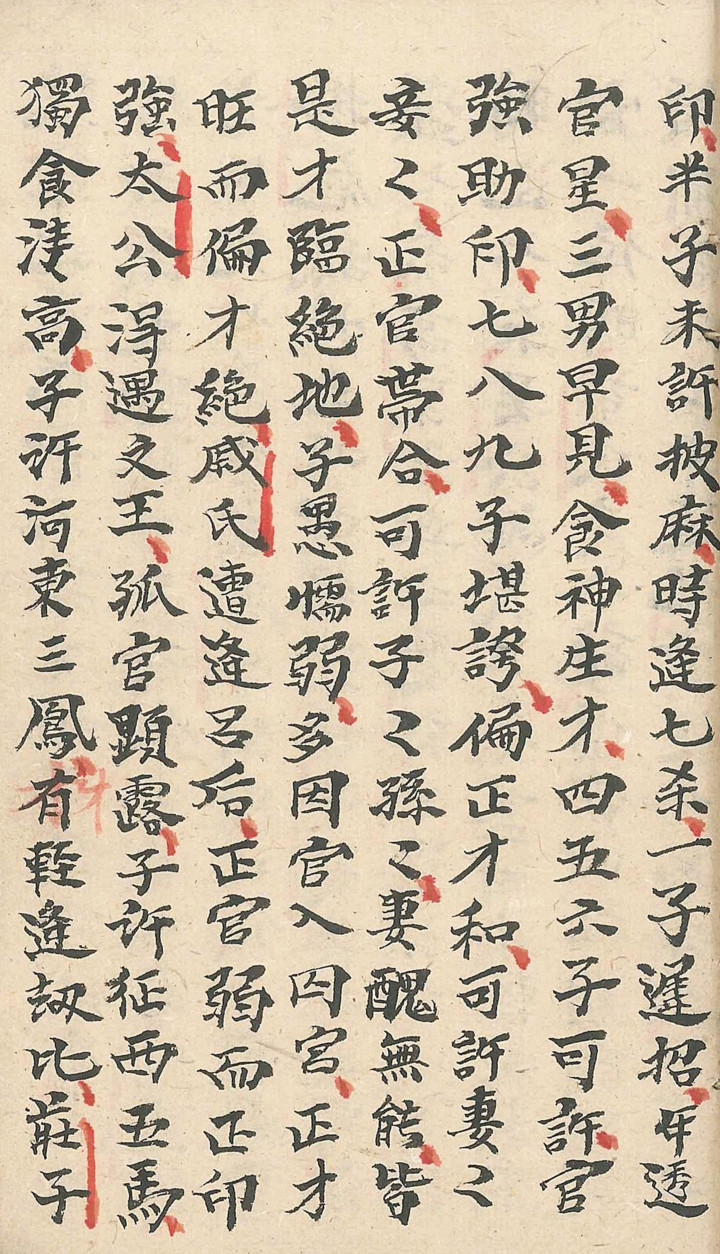 印半子未許披麻時逢七杀一子遲招年透
官星三男早見食神生才四五六子可許官
強助印七八九子堪誇偏正才和可許妻〻
妾〻正官帶合可許子〻孫〻妻醜無能皆
是才臨絕地子愚懦弱多因官入囚宮正才
旺而偏才絕戚氏遭逢呂后正官弱而正印
強太公淂遇文王孤官顕露子許征西五馬
獨食清高子許河東三鳳有輕逢刼比莊子